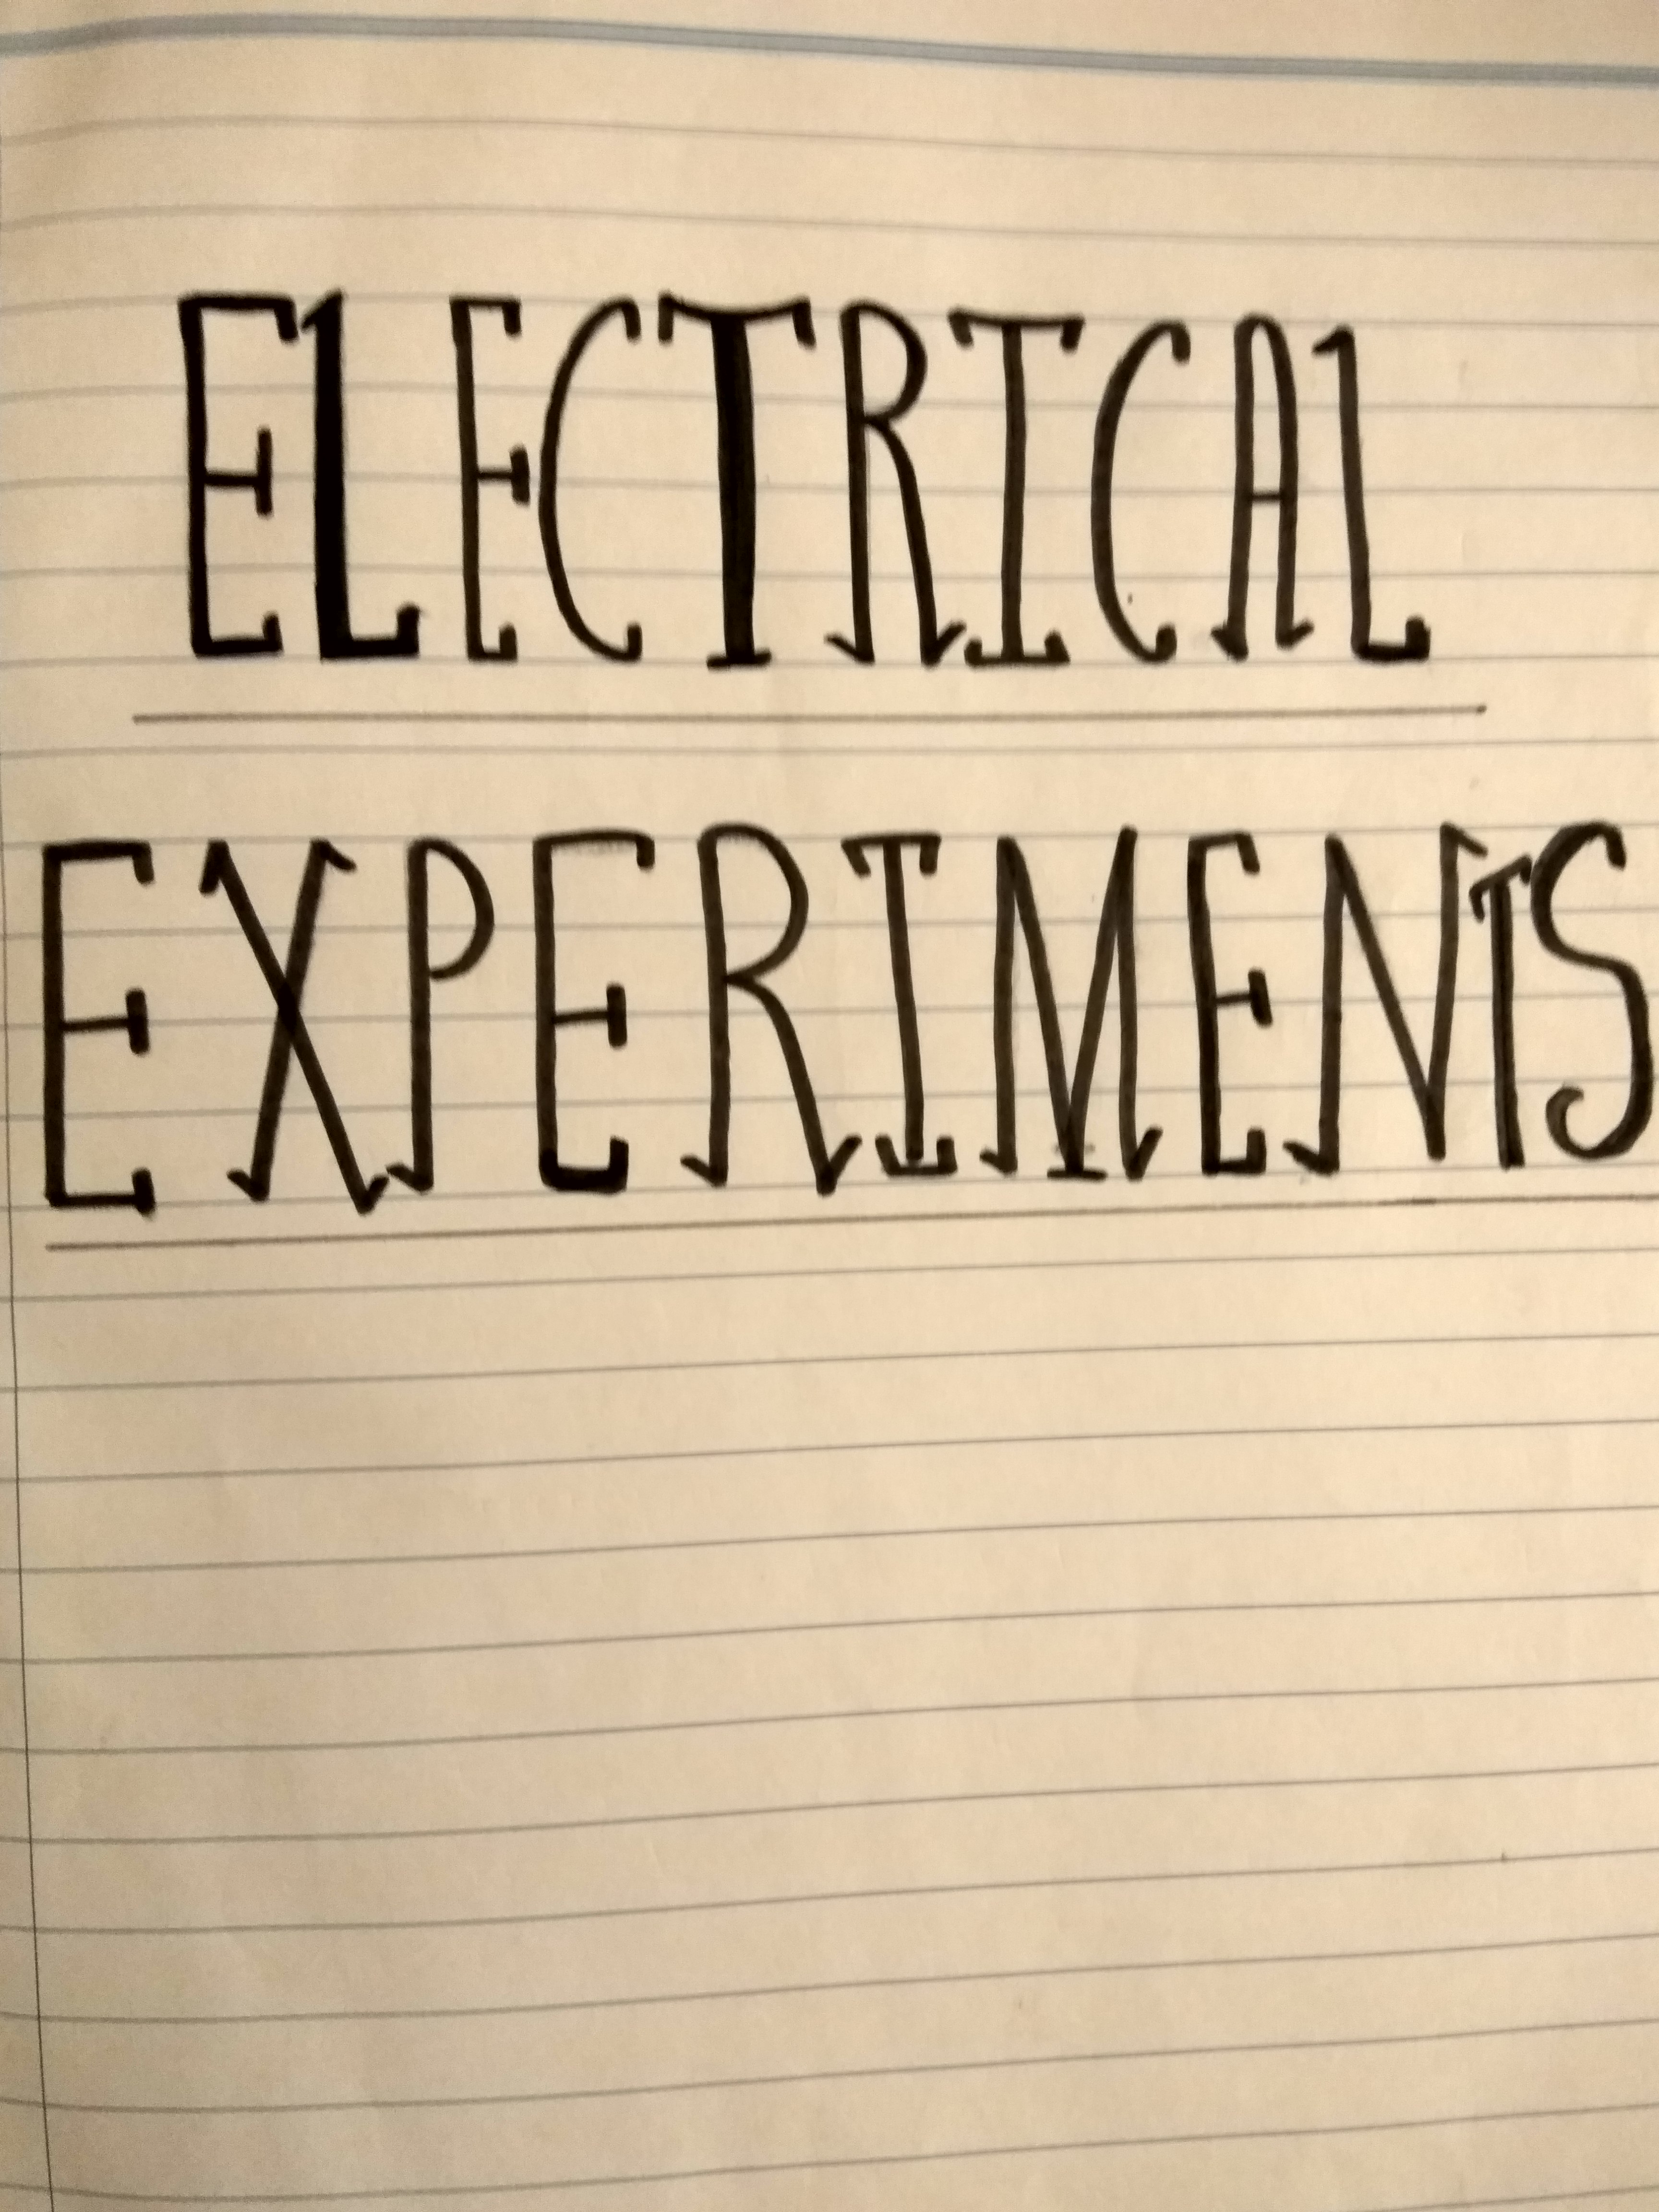 ELECTRICAL
EXPERIMENTS